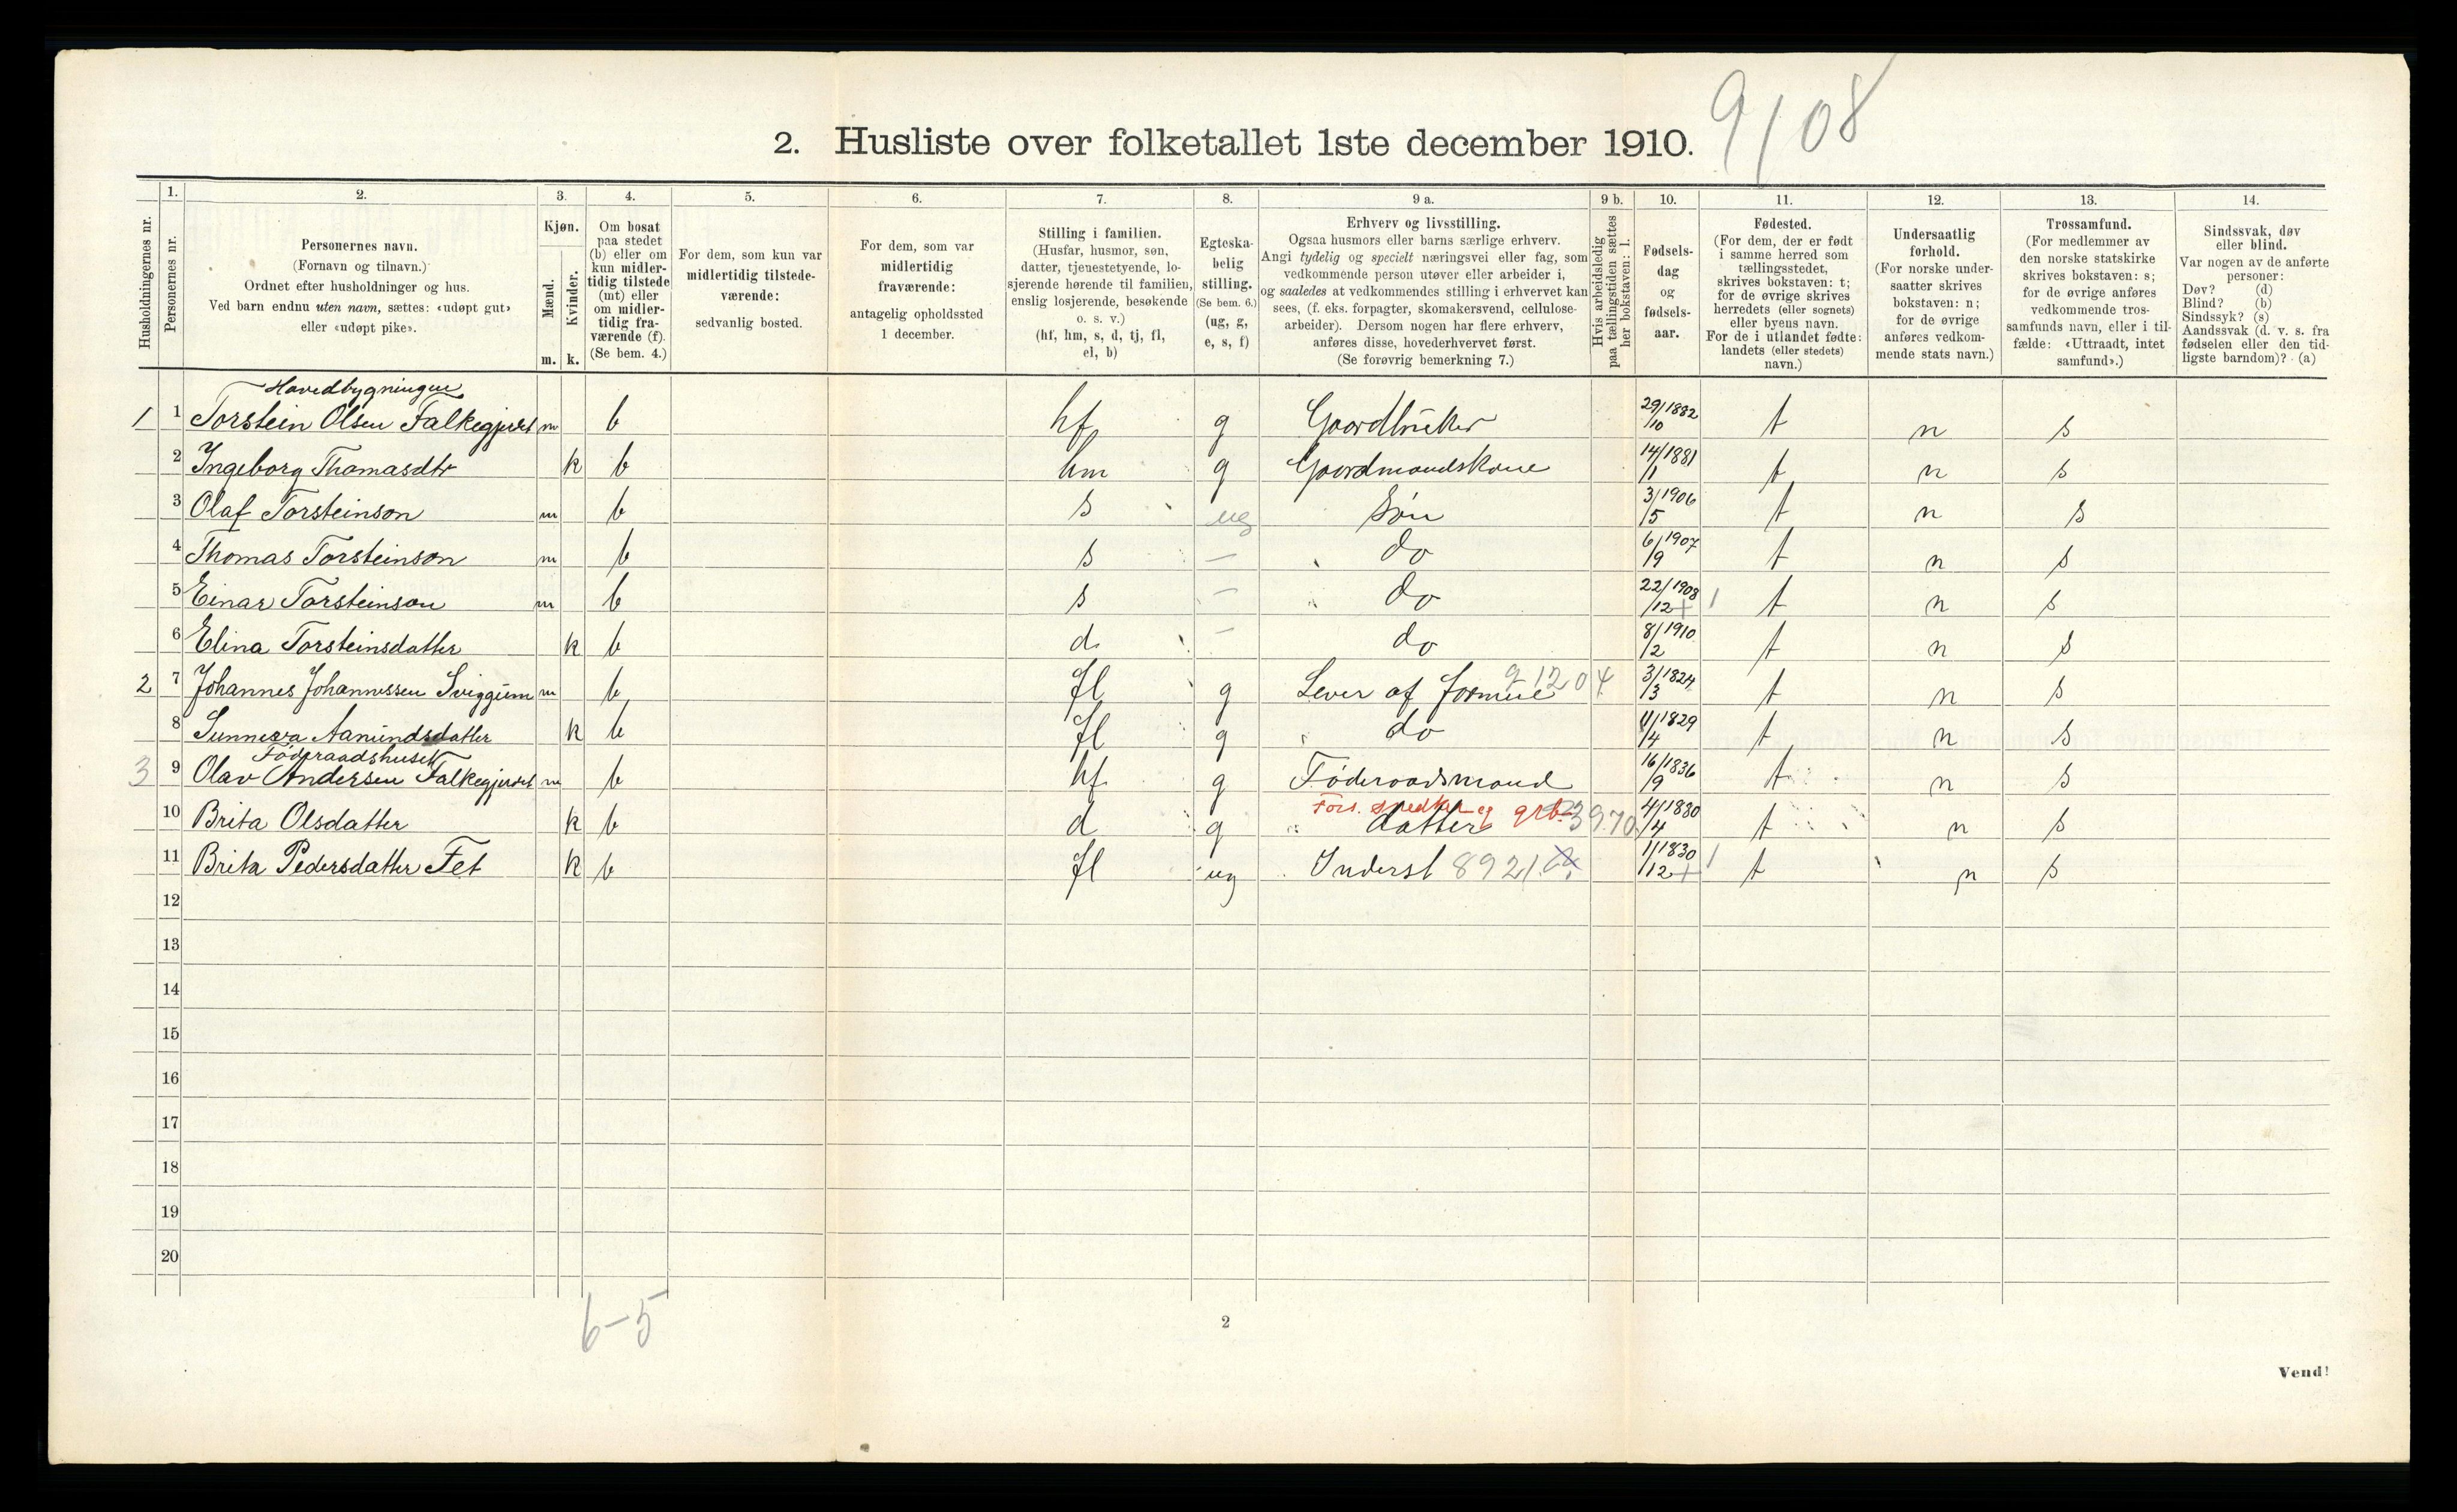 9/08
2. Husliste over folketallet 1ste december 1910.
Husholdningernes nr.
1.
Personernes nr.
2.
Personernes navn.
(Fornavn og tilnavn.)
Ordnet efter husholdninger og hus.
Ved barn endnu uten navn, sættes: «udøpt gut»
eller «udøpt pike».
3.
Kjøn.
Mænd.
m.
Kvinder.
k.
4.
Om bosat
paa stedet
(b) eller om
kun midler-
tidig tilstede
(mt) eller
om midler-
tidig fra-
værende (f).
(Se bem. 4.)
5.
For dem, som kun var
midlertidig tilstede-
værende:
sedvanlig bosted.
6.
For dem, som var
midlertidig
fraværende:
antagelig opholdssted
1 december.
7.
Stilling i familien.
(Husfar, husmor, søn,
datter, tjenestetyende, lo-
sjerende hørende til familien,
enslig losjerende, besøkende
o. s. v.)
(hf, hm, s, d, tj, fl,
el, b)
8.
Egteska-
belig
stilling.
(Se bem. 6.)
(ug, g,
e, s, f)
9 a.
Erhverv og livsstilling.
Ogsaa husmors eller barns særlige erhverv.
Angi tydelig og specielt næringsvei eller fag, som
vedkommende person utøver eller arbeider i,
og saaledes at vedkommendes stilling i erhvervet kan
sees, (f. eks. forpagter, skomakersvend, cellulose-
arbeider). Dersom nogen har flere erhverv,
anføres disse, hovederhvervet først.
(Se forøvrig bemerkning 7.)
9 b.
Hvis arbeidsledig
paa tællingstiden sættes
her bokstaven: l.
10.
Fødsels-
dag
og
fødsels-
aar.
11.
Fødested.
(For dem, der er født
i samme herred som
tællingsstedet,
skrives bokstaven: t;
for de øvrige skrives
herredets (eller sognets)
eller byens navn.
For de i utlandet fødte:
landets (eller stedets)
navn.)
12.
Undersaatlig
forhold.
(For norske under-
saatter skrives
bokstaven: n;
for de øvrige
anføres vedkom-
mende stats navn.)
13.
Trossamfund.
(For medlemmer av
den norske statskirke
skrives bokstaven: s;
for de øvrige anføres
vedkommende tros-
samfunds navn, eller i til-
fælde: «Uttraadt, intet
samfund».)
14.
Sindssvak, døv
eller blind.
Var nogen av de anførte
personer:
Døv? (d)
Blind? (b)
Sindssyk? (s)
Aandssvak (d. v. s. fra
fødselen eller den tid-
ligste barndom)? (a)
Hovedbygningen
1 1 Torstein Olsen Falkegjerdet m b hf g Gaardbruker 29/10 1882 t n s
2 Ingeborg Thomasdtr k b hm g Gaardmandskone 14/1 1881 t n s
3 Olaf Torsteinson m b s ug Søn 3/5 1906 t n s
4 Thomas Torsteinson m b s — do 6/9 1907 t n s
5 Einar Torsteinson m b s — do 22/12 1908 + 1 t n s
6 Elina Torsteinsdatter k b d — do 8/2 1910 t n s
2 7 Johannes Johannessen Sviggum m b fl g Lever af formue 91204 3/3 1824 t n s
8 Sunneva Aamundsdatter k b fl g do 11/4 1829 t n s
Føderaadshuset
3 9 Olav Andersen Falkegjerdet m b hf g Føderaadsmand 16/9 1836 t n s
Fors. snedker og grb. 3970
10 Brita Olsdatter k b d g datter 4/4 1830 t n s
11 Brita Pedersdatter Fet k b fl ug Inderst 8921 1/12 1830 + 1 t n s
12
13
14
15
16
17
18
19
20
6-5
2
Vend!